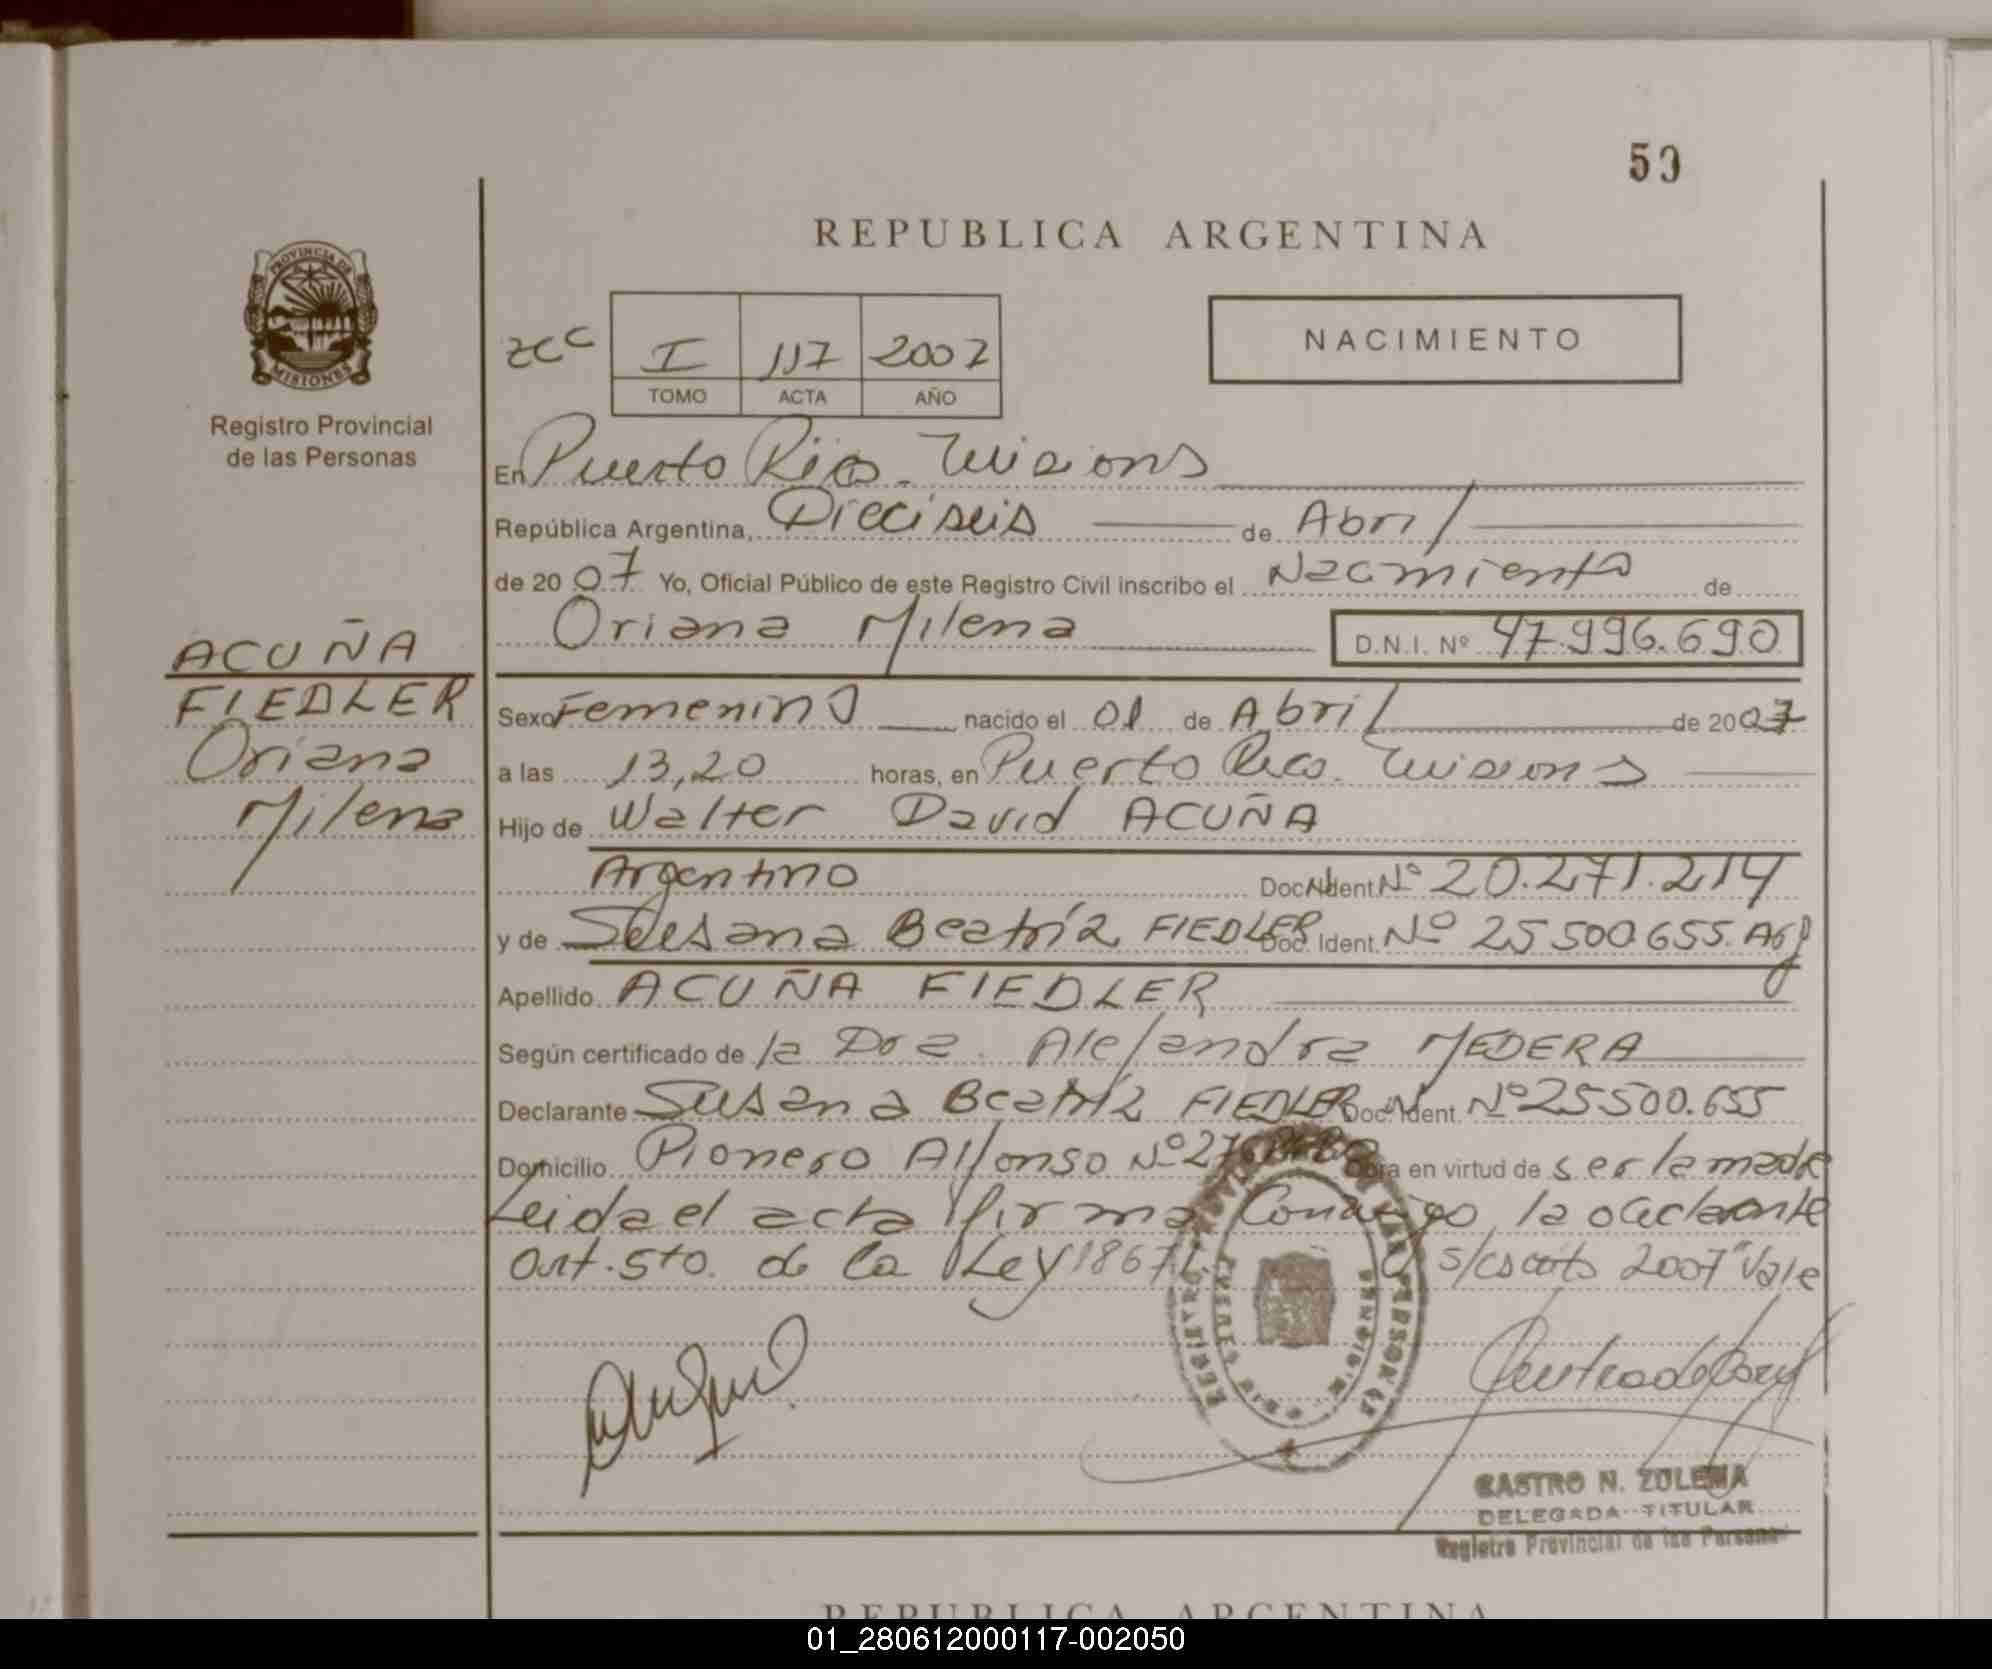 59
REPUBLICA ARGENTINA
PROVINCIA DE
MISIONES
Registro Provincial
de las Personas
I 117 2007
TOMO ACTA AÑO
NACIMIENTO
En Puerto Rico. Misiones
República Argentina, Dieciseis de Abril
de 20 07 Yo, Oficial Público de este Registro Civil inscribo el Nacimiento de
Oriana Milena D.N.I. Nº 47.996.690
ACUÑA
FIEDLER
Oriana
Milena
Sexo Femenino nacido el 01 de Abril de 2007
a las 13,20 horas, en Puerto Rico. Misiones
Hijo de Walter David ACUÑA
Argentino Doc. Ident. Nº 20.271.214
y de Susana Beatríz FIEDLER Doc. Ident. Nº 25500.655. Arg
Apellido ACUÑA FIEDLER
Según certificado de la Dra. Alejandra MEDERA
Declarante Susana Beatríz FIEDLER Doc. Ident. Nº 25500.655
Domicilio Pionero Alfonso Nº Obra en virtud de ser la madre
Leida el acta firma Conmigo, la declarante
art. 5to. de la Ley 18671. 2007" Vale
CASTRO N. ZULEMA
DELEGADA TITULAR
Registro Provincial de las Personas
REPUBLICA ARGENTINA
01_280612000117-002050